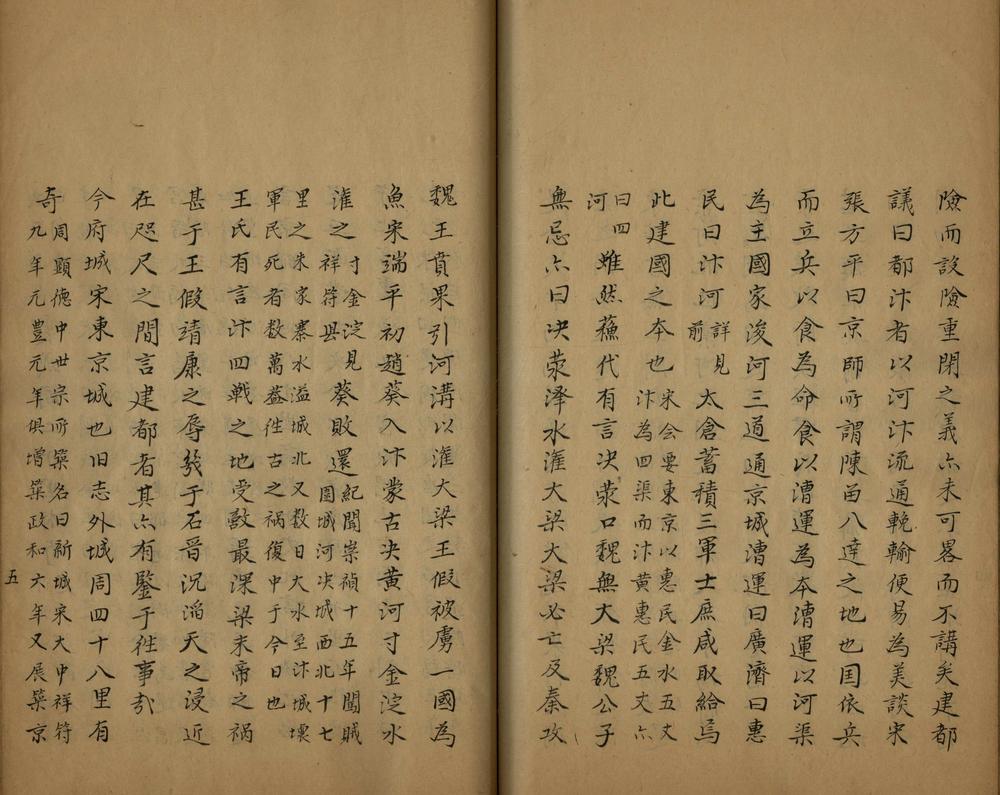 險而設險重閉之義亦未可畧而不講矣建都
議曰都汴者以河汴流通輓輸便易為美談宋
張方平曰京師所謂陳留八達之地也国依兵
而立兵以食為命食以漕運為夲漕運以河渠
為主國家浚河三道通京城漕運曰廣濟曰惠
民曰汴河詳見前太倉蓄積三軍士庶咸取給焉
此建國之夲也宋会要東京以惠民金水五丈
汴為四渠而汴黄惠民五丈亦
曰四
河雖然蘓代有言决荥口魏無大梁魏公子
無忌亦曰决荥泽水漼大梁大梁必亡反秦攻
魏王賁果引河溝以漼大梁王假被虜一國為
魚宋端平初趙葵入汴蒙古决黄河寸金淀水
漼之寸金淀見
祥符县葵敗還紀聞崇禎十五年闖贼
圍城河决城西北十七
里之朱家寨水溢城北又数日大水至汴城壞
軍民死者数萬葢徃古之祸復中于今日也
王氏有言汴四戰之地受敵最深梁末帝之祸
甚于王假靖康之辱㡬于石晋况滔天之浸近
在咫尺之間言建都者其亦有鑒于徃事㢤
今府城宋東京城也旧志外城周四十八里有
奇周顯德中世宗所築名曰新城宋大中祥符
九年元豊元年俱增築政和六年又展築京
五